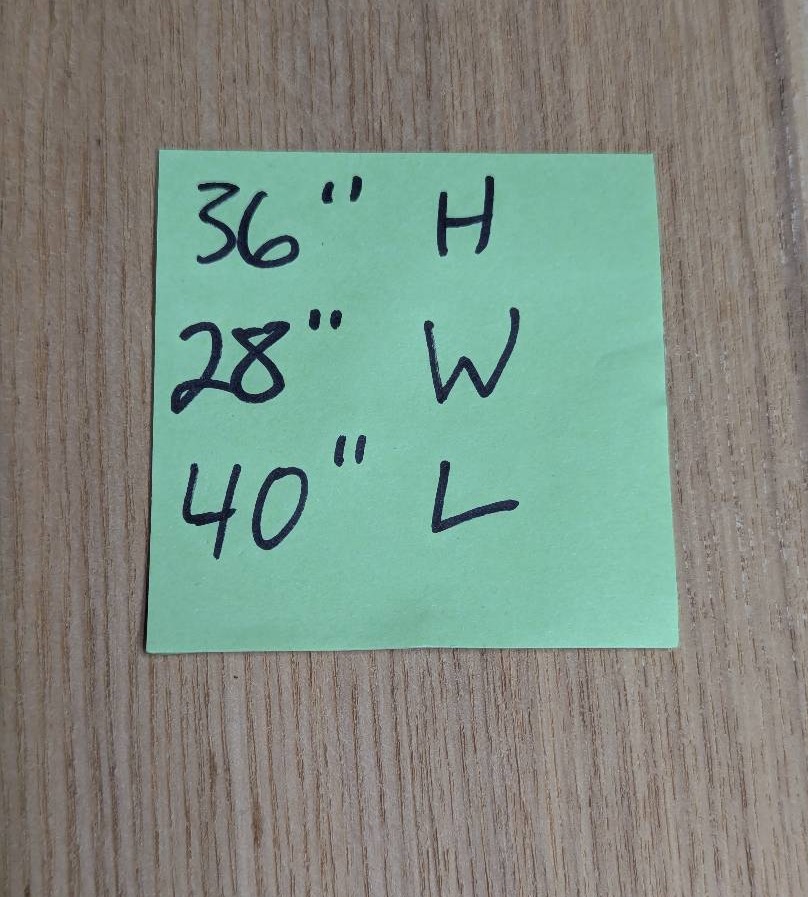 36" H
28" W
40" L